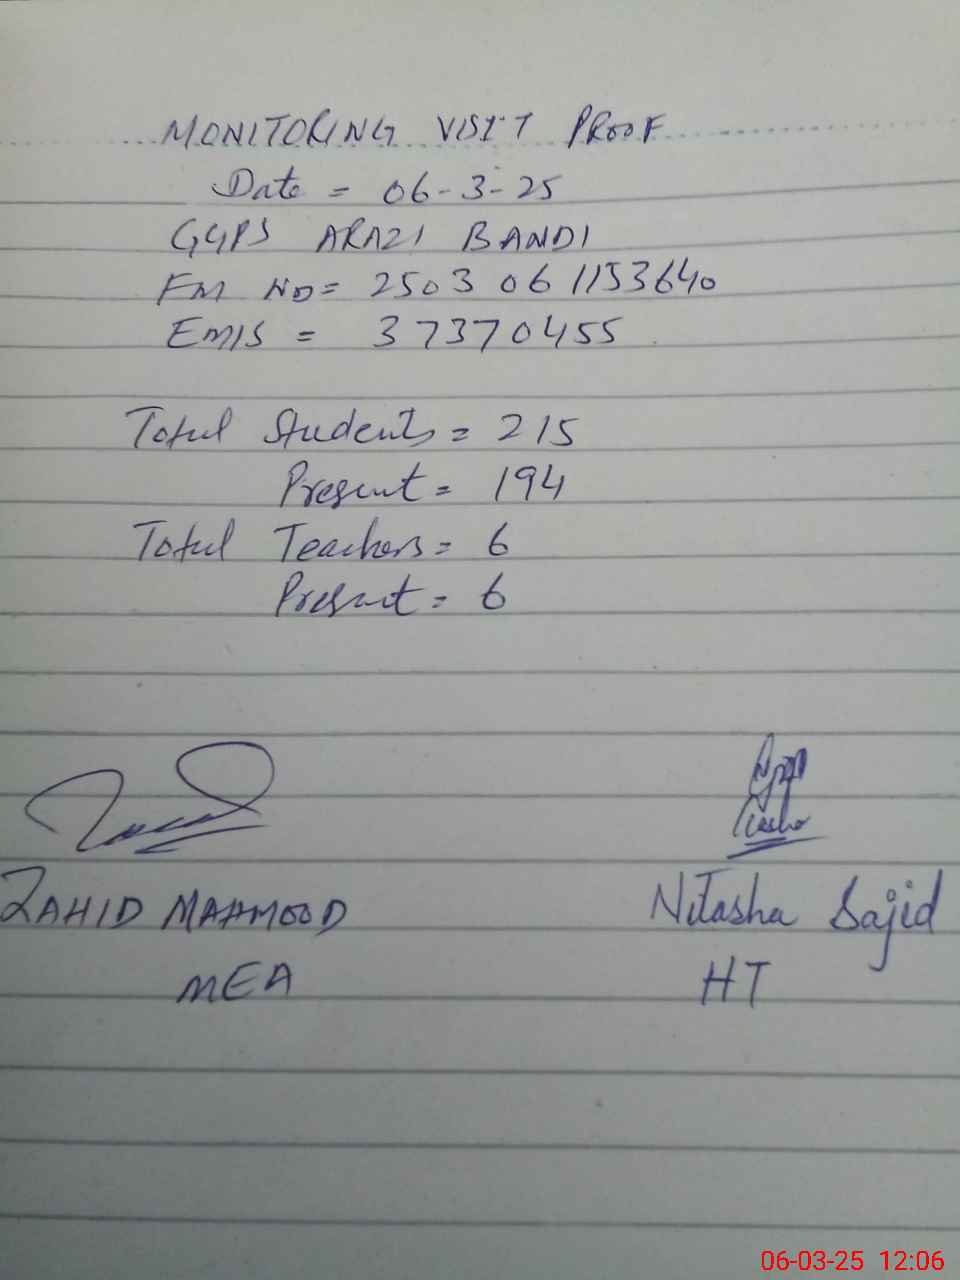 MONITORING VISIT PROOF
Date = 06-3-25
GGPS ARAZI BANDI
FM NO= 2503 06 1153640
EMIS = 37370455
Total Students = 215
Present = 194
Total Teachers = 6
Present = 6
ZAHID MAHMOOD
Nitasha Sajid
MEA
HT
06-03-25 12:06